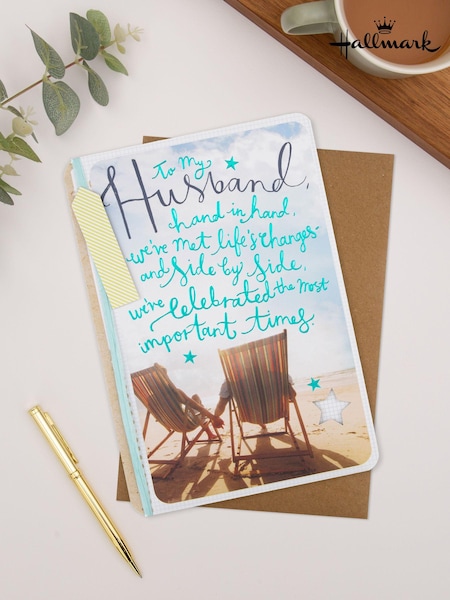 Hallmark
To My
Husband,
hand-in-hand,
we've met life's changes
and side by side,
we've celebrated the most
important times.